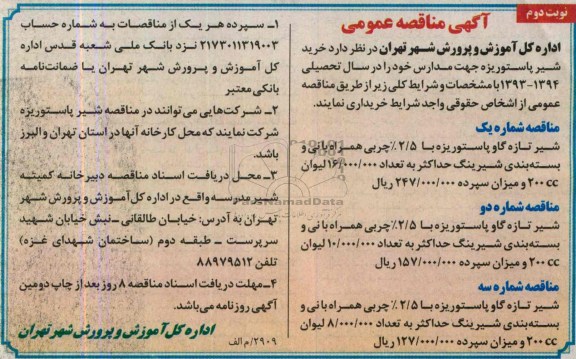 نوبت دوم
آگهی مناقصه عمومی
اداره کل آموزش و پرورش شهر تهران در نظر دارد خرید
شیر پاستوریزه جهت مدارس خود را در سال تحصیلی
۱۳۹۴-۱۳۹۳ با مشخصات و شرایط کلی زیر از طریق مناقصه
عمومی از اشخاص حقوقی واجد شرایط خریداری نمایند.
مناقصه شماره یک
شیر تازه گاو پاستوریزه با ۲/۵٪ چربی همراه با نی و
بسته‌بندی شیرینگ حداکثر به تعداد ۱۶/۰۰۰/۰۰۰ لیوان
۲۰۰ cc و میزان سپرده ۲۴۷/۰۰۰/۰۰۰ ریال
مناقصه شماره دو
شیر تازه گاو پاستوریزه با ۲/۵٪ چربی همراه با نی و
بسته‌بندی شیرینگ حداکثر به تعداد ۱۰/۰۰۰/۰۰۰ لیوان
۲۰۰ cc و میزان سپرده ۱۵۷/۰۰۰/۰۰۰ ریال
مناقصه شماره سه
شیر تازه گاو پاستوریزه با ۲/۵٪ چربی همراه با نی و
بسته‌بندی شیرینگ حداکثر به تعداد ۸/۰۰۰/۰۰۰ لیوان
۲۰۰ cc و میزان سپرده ۱۲۷/۰۰۰/۰۰۰ ریال
۱ـ سپرده هر یک از مناقصات به شماره حساب
۲۱۷۳۰۱۱۳۱۹۰۰۳ نزد بانک ملی شعبه قدس اداره
کل آموزش و پرورش شهر تهران یا ضمانت‌نامه
بانکی معتبر
۲ـ شرکت‌هایی می‌توانند در مناقصه شیر پاستوریزه
شرکت نمایند که محل کارخانه آنها در استان تهران و البرز
باشد.
۳ـ محل دریافت اسناد مناقصه دبیرخانه کمیته
شیر مدرسه واقع در اداره کل آموزش و پرورش شهر
تهران به آدرس: خیابان طالقانی ـ نبش خیابان شهید
سرپرست ـ طبقه دوم (ساختمان شهدای غزه)
تلفن ۸۸۹۷۹۵۱۲
۴ـ مهلت دریافت اسناد مناقصه ۸ روز بعد از چاپ دومین
آگهی روزنامه می‌باشد.
اداره کل آموزش و پرورش شهر تهران
۲۹۰۹/م الف